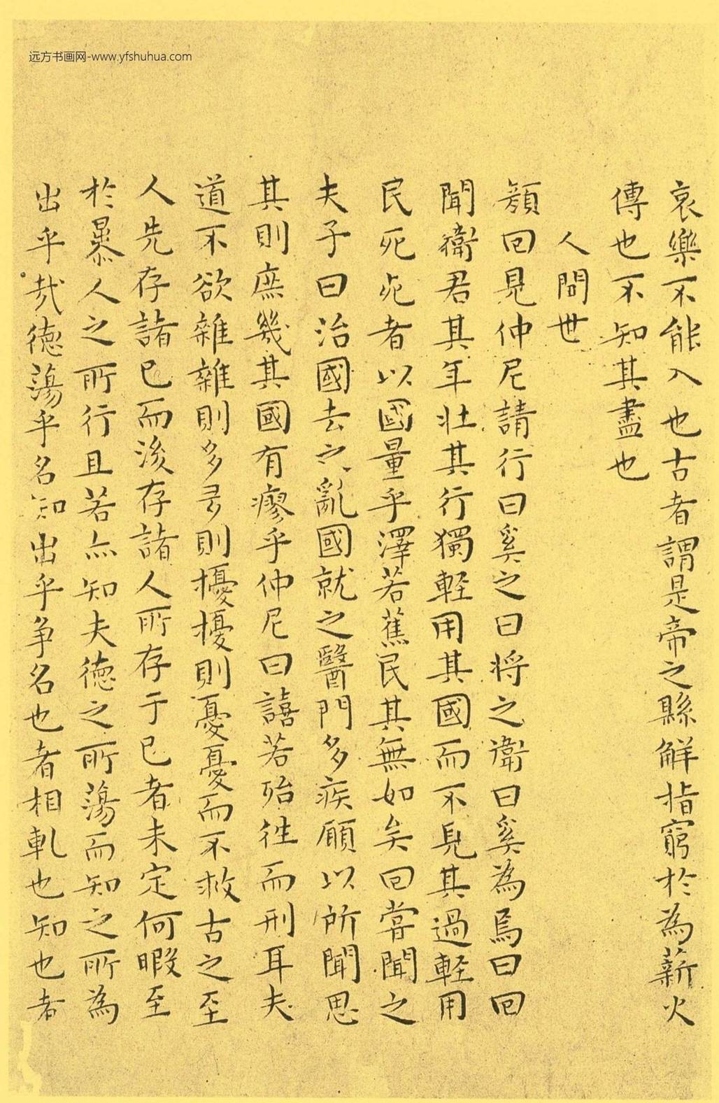 远方书画网-www.yfshuhua.com
哀樂不能入也古者謂是帝之縣解指窮於為薪火
傳也不知其盡也
人間世
顏回見仲尼請行曰奚之曰将之衛曰奚為焉曰回
聞衛君其年壮其行獨輕用其國而不見其過輕用
民死死者以國量乎澤若蕉民其無如矣回甞聞之
夫子曰治國去之亂國就之醫門多疾願以所聞思
其則庶幾其國有瘳乎仲尼曰譆若殆往而刑耳夫
道不欲雜雜則多多則擾擾則憂憂而不救古之至
人先存諸已而後存諸人所存于已者未定何暇至
於暴人之所行且若亦知夫德之所蕩而知之所為
出乎哉德蕩乎名知出乎争名也者相軋也知也者